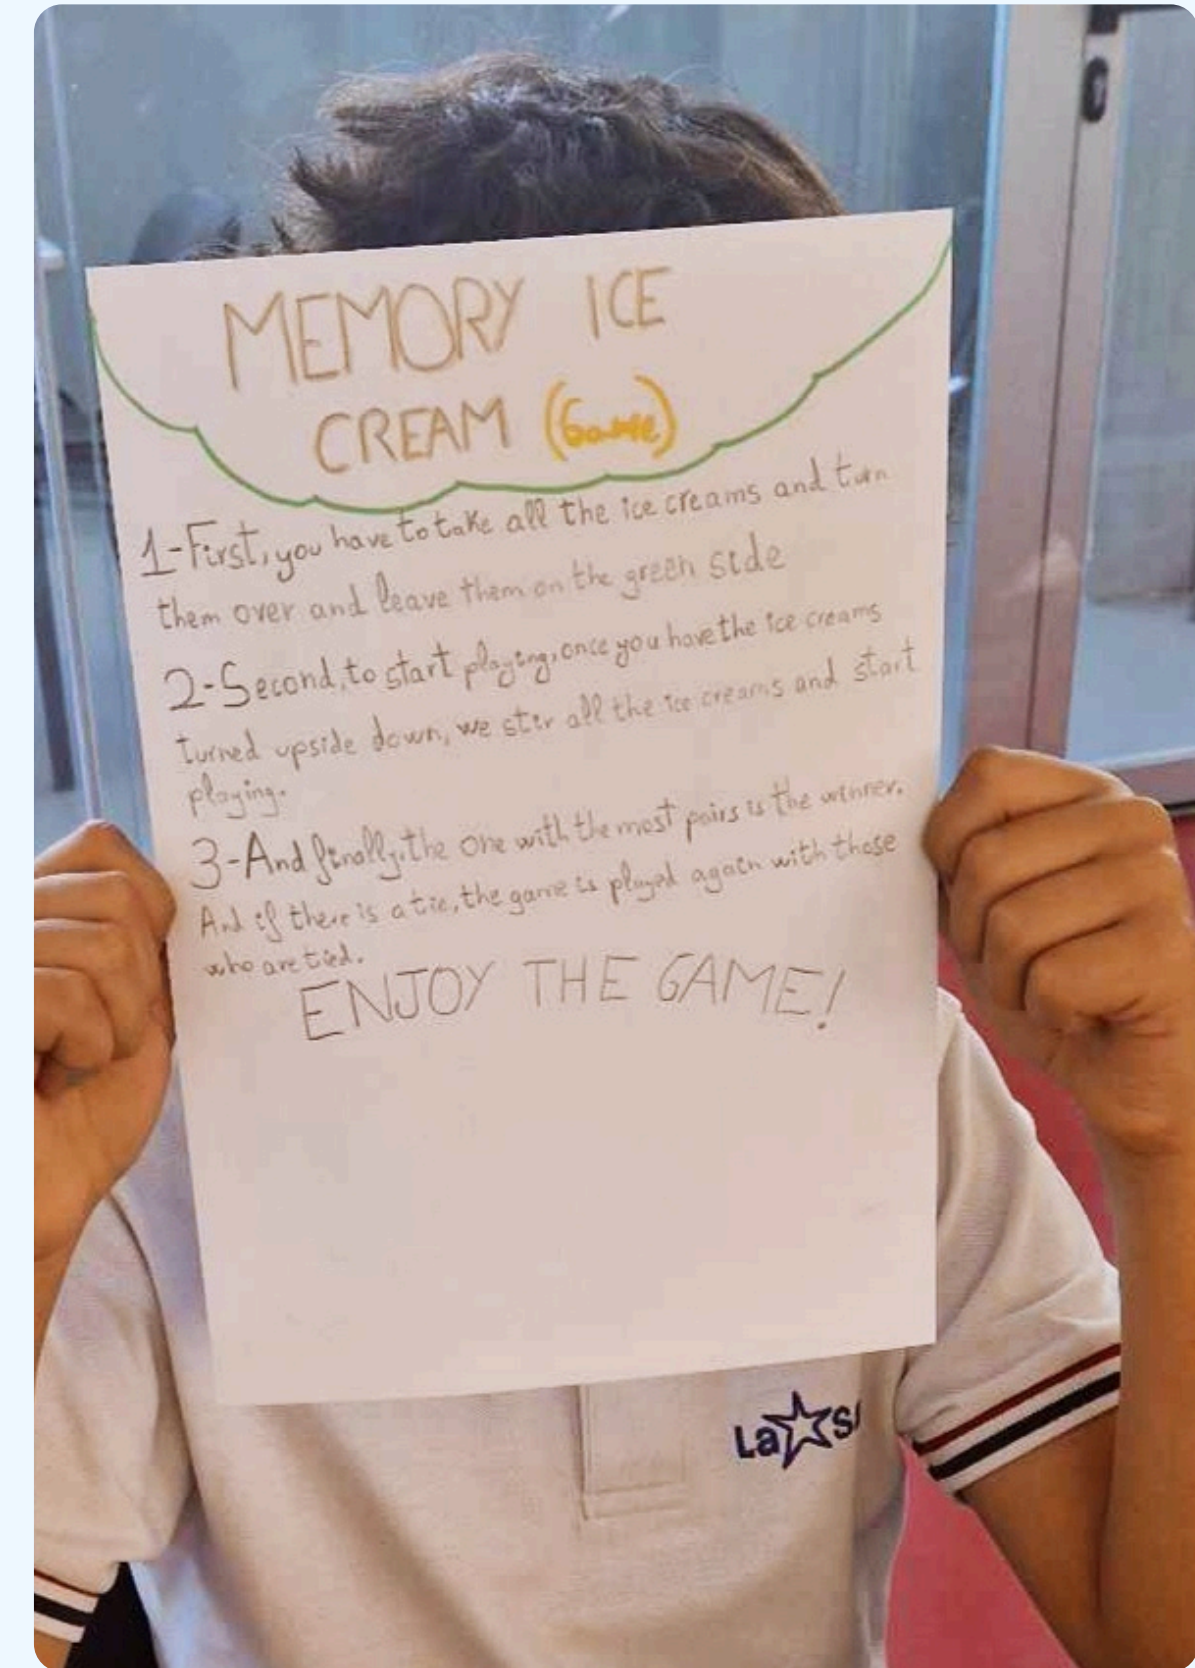 MEMORY ICE
CREAM (Game)
1-First, you have to take all the ice creams and turn
them over and leave them on the green side
2-Second, to start playing, once you have the ice creams
turned upside down, we stir all the ice creams and start
playing.
3-And finally, the one with the most pairs is the winner.
And if there is a tie, the game is played again with those
who are tied.
ENJOY THE GAME!
La S